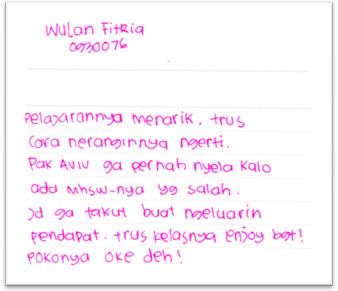 Wulan Fitria
0930076
Pelajarannya menarik. trus
Cara neranginnya ngerti.
Pak Aviv ga pernah nyela kalo
ada mhsw-nya yg salah.
Jd ga takut buat ngeluarin
pendapat. trus kelasnya enjoy bgt!
Pokonya oke deh!